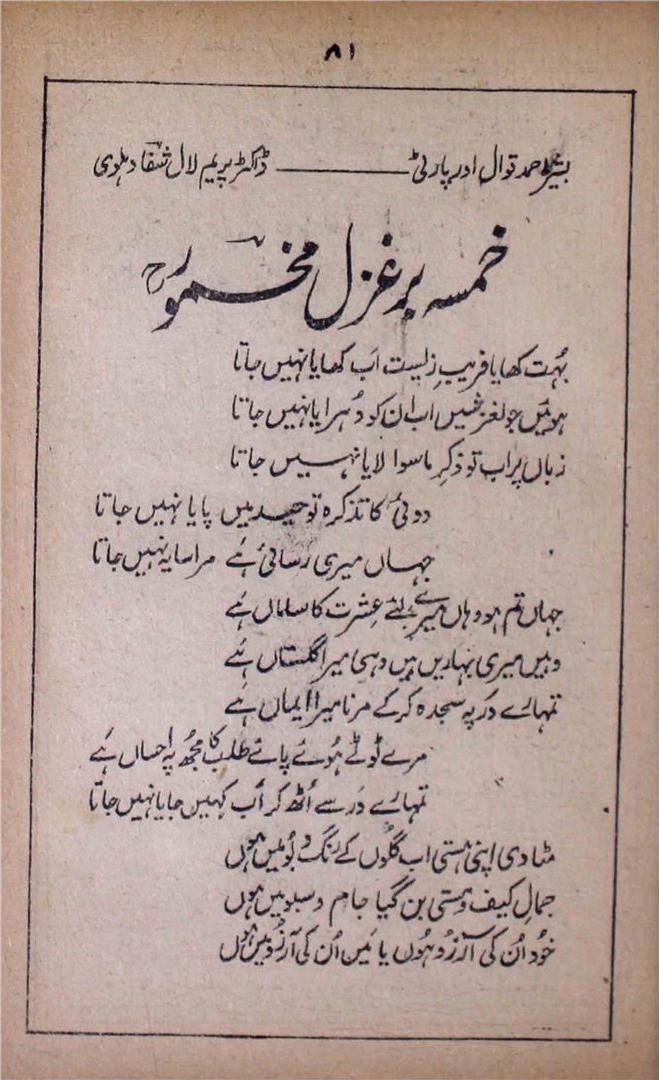 ۸۱
بشیر احمد قوال اور پارٹی ــــــــــ ڈاکٹر پریم لال شفا دہلوی
خمسہ بر غزل مخمور
بہُت کھایا فریبِ زلیست اَب کھایا نہیں جاتا
ہوئیں جو لغزشیں اب ان کو دُہرایا نہیں جاتا
زباں پر اب تو ذکرِ ماسوا لایا نہیں جاتا
دوئی کا تذکرہ توحید میں پایا نہیں جاتا
جہاں میری رسائی ہَے مرا سایہ نہیں جاتا
جہاں تم ہو وہاں میرے لئے عِشرت کا ساماں ہَے
وہیں میری بہاریں ہیں وہی میرا گلستاں ہَے
تمہارے دَر پہ سجدہ کر کے مرنا میرا ایماں ہَے
مرے ٹوٹے ہُوئے پائے طلب کا مجھُ پہ احساں ہَے
تمہارے دَر سے اُٹھ کر اَب کہیں جایا نہیں جاتا
مٹا دی اپنی ہستی اب گلُوں کے رنگ و بُو میں ہُوں
جمالِ کیف و مستی بن گیا جام و سبُو میں ہُوں
خُود اُن کی آرزُو ہُوں یا مَیں اُن کی آرزُو میں ہُوں